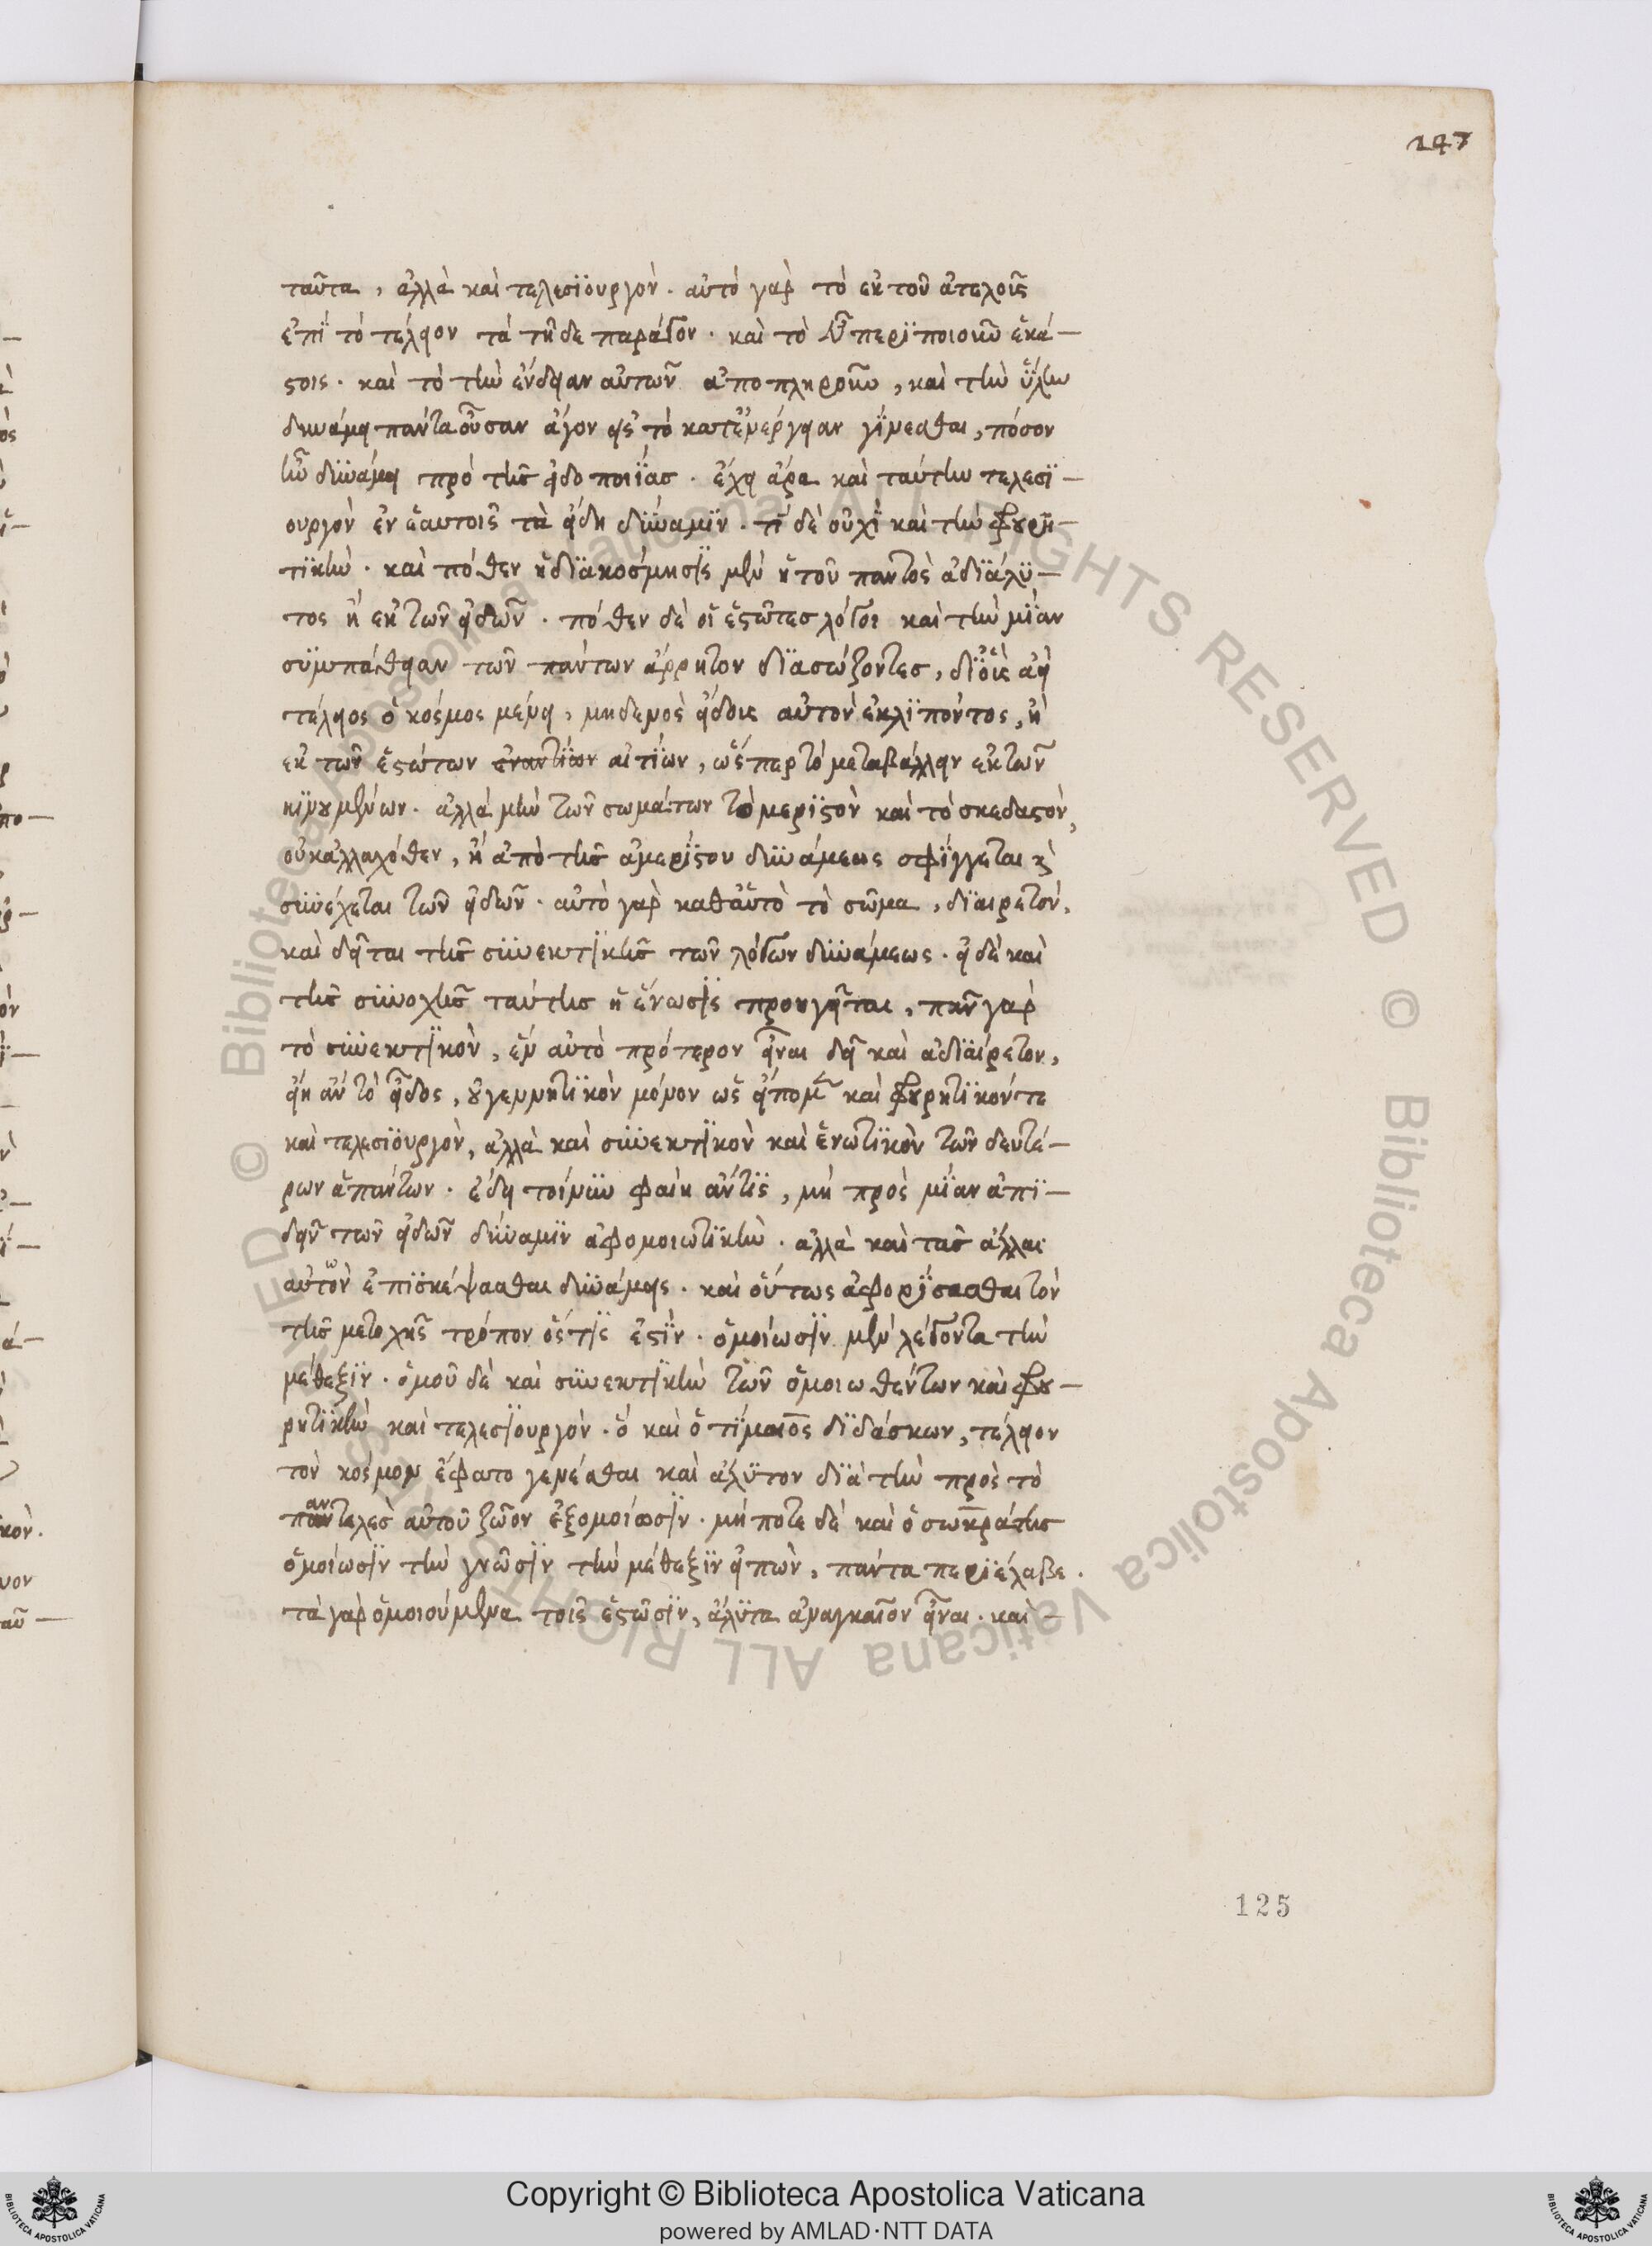 147
ταῦτα, ἀλλὰ καὶ τελεσϊουργὸν. αὐτὸ γὰρ τὸ ἐκ τοῦ ἀτελοῦς
ἐπῒ τὸ τέλειον τὰ τῆδε παράγον. καὶ τὸ εὖ περϊποιοῦν ἑκά-
στοις. καὶ τὸ τὴν ἔνδειαν αὐτῶν ἀποπληροῦν, καὶ τὴν ὕλην
δυνάμει πάντα οὖσαν ἄγον εἰς τὸ κατ' ἐνέργειαν γίνεσθαι, πόσον
ἦν δϋνάμει πρὸ τῆς εἰδοποιΐας. ἔχει ἄρα καὶ ταύτην τελεσϊ-
ουργὸν ἐν ἑαυτοῖς τὰ εἴδη δύναμϊν. τί δὲ οὐχῒ καὶ τὴν φρουρη-
τϊκὴν. καὶ πόθεν ἡ δϊακόσμησϊς μὲν ἡ τοῦ παντὸς ἀδϊάλϋ-
τος ἢ ἐκ τῶν εἰδῶν. πόθεν δὲ οἱ ἑστῶτες λόγοι καὶ τὴν μῒαν
συμπάθειαν τῶν πάντων ἄρρητον δϊασώζοντες, δϊ' οὓς ἀεὶ
τέλειος ὁ κόσμος μένει, μηδενὸς εἴδους αὐτὸν ἐκλϊπόντος, ἢ
ἐκ τῶν ἑστώτων ἐναντίων αἰτίων, ὥσπερ τὸ μεταβάλλειν ἐκ τῶν
κϊνουμένων. ἀλλὰ μὴν τῶν σωμάτων τὸ μερϊστὸν καὶ τὸ σκεδαστὸν,
οὐκ ἀλλαχόθεν, ἢ ἀπὸ τῆς ἀμερίστου δϋνάμεως σφΐγγεται καὶ
σϋνέχεται τῶν εἰδῶν. αὐτὸ γὰρ καθ' αὑτὸ τὸ σῶμα, δϊαιρετὸν,
καὶ δεῖται τῆς σϋνεκτϊκῆς τῶν λόγων δϋνάμεως. εἰ δὲ καὶ
τῆς σϋνοχῆς ταύτης ἡ ἕνωσϊς προηγεῖται, πᾶν γὰρ
τὸ σϋνεκτϊκὸν, ἓν αὐτὸ πρότερον εἶναι δεῖ καὶ ἀδϊαίρετον,
εἴη ἂν τὸ εἶδος, οὐ γεννητϊκὸν μόνον ὡς εἴπομεν καὶ φρουρητϊκόν τε
καὶ τελεσϊουργὸν, ἀλλὰ καὶ σϋνεκτϊκὸν καὶ ἑνωτϊκὸν τῶν δευτέ-
ρων ἁπάντων. ἔδει τοίνϋν φαίη ἄν τϊς, μὴ πρὸς μῒαν ἀπϊ-
δεῖν τῶν εἰδῶν δύναμϊν ἀφομοιωτϊκὴν. ἀλλὰ καὶ τὰς ἄλλας
αὐτῶν ἐπϊσκέψασθαι δϋνάμεις. καὶ οὕτως ἀφορΐσασθαι τὸν
τῆς μετοχῆς τρόπον ὅστϊς ἐστϊν. ὁμοίωσϊν μὲν λέγοντα τὴν
μέθεξϊν. ὁμοῦ δὲ καὶ σϋνεκτϊκὴν τῶν ὁμοιωθέντων καὶ φρου-
ρητϊκὴν καὶ τελεσϊουργὸν. ὃ καὶ ὁ τίμαιος δϊδάσκων, τέλειον
τὸν κόσμον ἔφατο γενέσθαι καὶ ἄλϋτον δϊὰ τὴν πρὸς τὸ
παντελὲς αὐτοῦ ζῶον ἐξομοίωσϊν. μή ποτε δὲ καὶ ὁ σωκράτης
ὁμοίωσϊν τὴν γνῶσϊν τὴν μέθεξϊν εἰπὼν, πάντα περϊέλαβε.
τὰ γὰρ ὁμοιούμενα τοῖς ἑστῶσϊν, ἄλϋτα ἀναγκαῖον εἶναι. καὶ -
125
© Biblioteca Apostolica Vaticana ALL RIGHTS RESERVED © Biblioteca Apostolica Vaticana ALL RIGHTS RESERVED
Copyright © Biblioteca Apostolica Vaticana
powered by AMLAD·NTT DATA